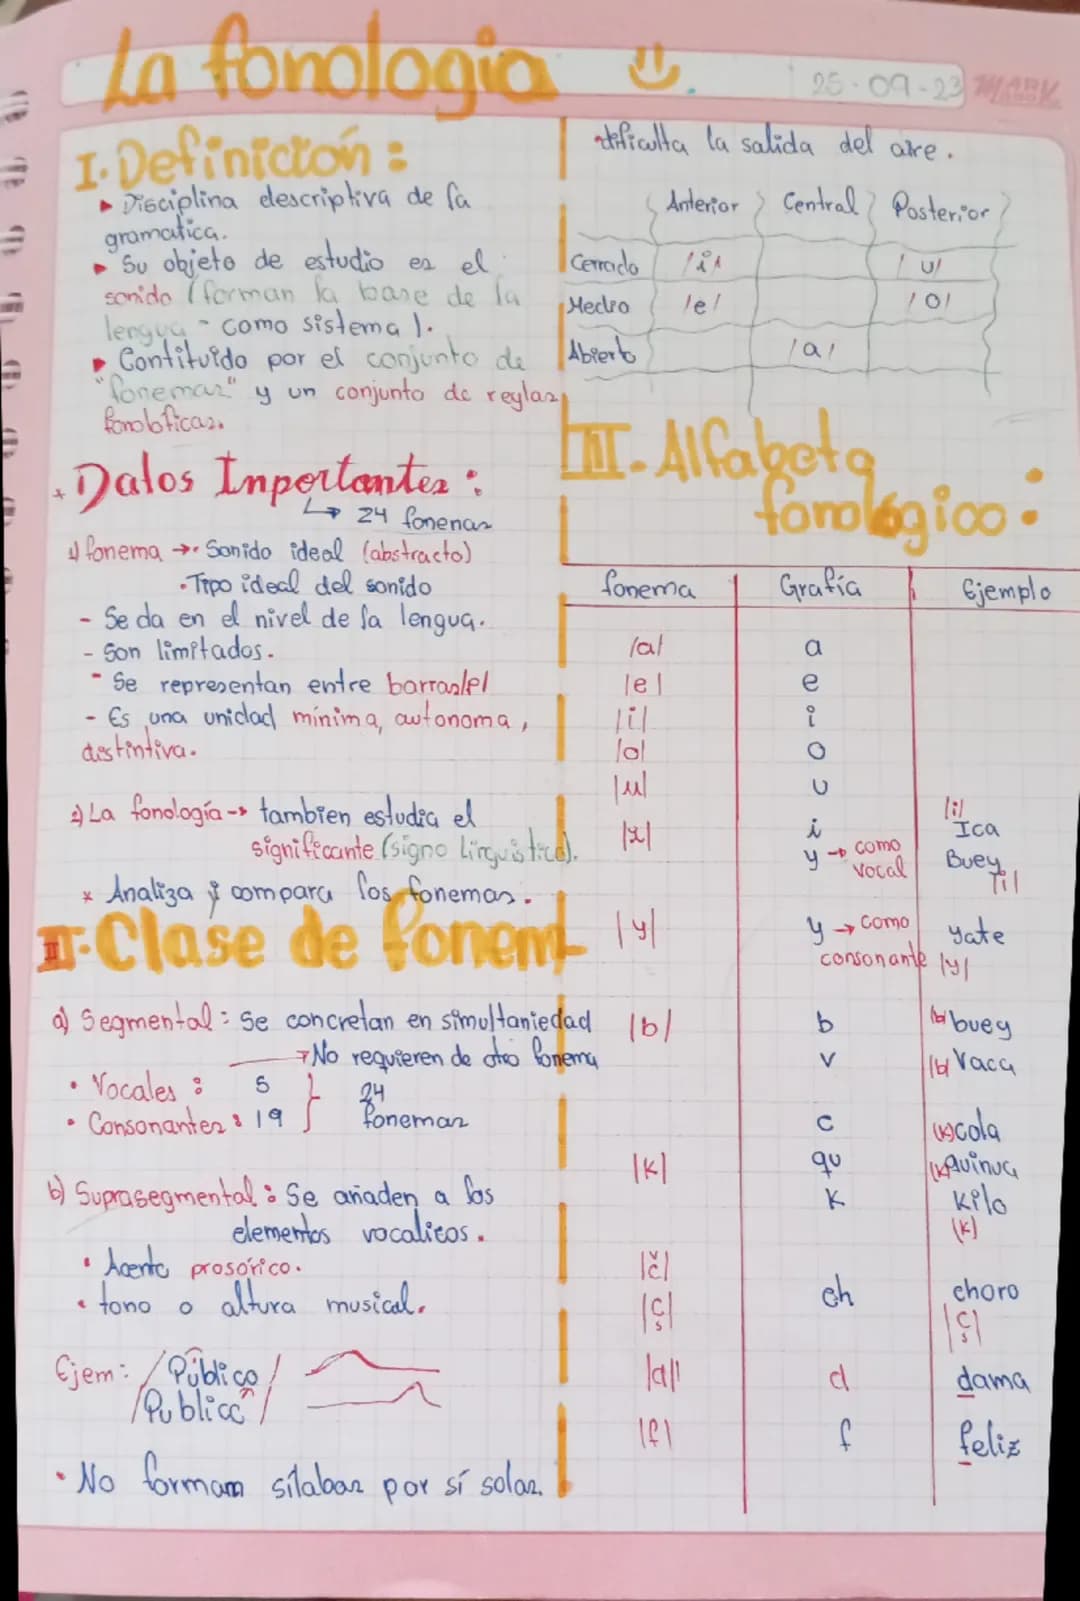 La fonologia
25-09-23 MARK
I. Definición:
▸ Disciplina descriptiva de la
gramatica.
▸ Su objeto de estudio es el
sonido (forman la base de la
lengua - como sistema).
▸ Contituido por el conjunto de
"fonemas" y un conjunto de reglas
Datos Inportantes:
↳ 24 fonemas
1) fonema → • Sonido ideal (abstracto)
• Tipo ideal del sonido
- Se da en el nivel de la lengua.
- Son limitados.
- Se representan entre barras/e/
- Es una unidad mínima, autonoma,
distintiva.
2) La fonología → tambien estudia el
significante (signo Linguistico).
* Analiza y compara los fonemas.
II. Clase de fonem
a) Segmental: Se concretan en simultaniedad
→ No requieren de otro fonema
• Vocales: 5
• Consonantes: 19 } 24 fonemas
b) Suprasegmental: Se añaden a los
elementos vocalicos.
• Acento prosórico.
• tono o altura musical.
Ejem: /Público/
/Publicó/
• No formam sílabas por sí solas.
dificulta la salida del aire.
Anterior Central Posterior
Cerrado /i/ /u/
Medio /e/ /o/
Abierto /a/
III. Alfabeto
fonológico:
fonema Grafía Ejemplo
/a/ a
/e/ e
/i/ i
/o/ o
/u/ u
/i/
i Ica
y → como vocal Buey
/i/
/y/ y → como consonante yate
/y/
/b/ b /b/ buey
v /b/ Vaca
c (k) cola
/k/ qu (k) Quinua
k kilo
(k)
/č/
/ç/ ch choro
/ç/
s
/d/ d dama
/f/ f feliz